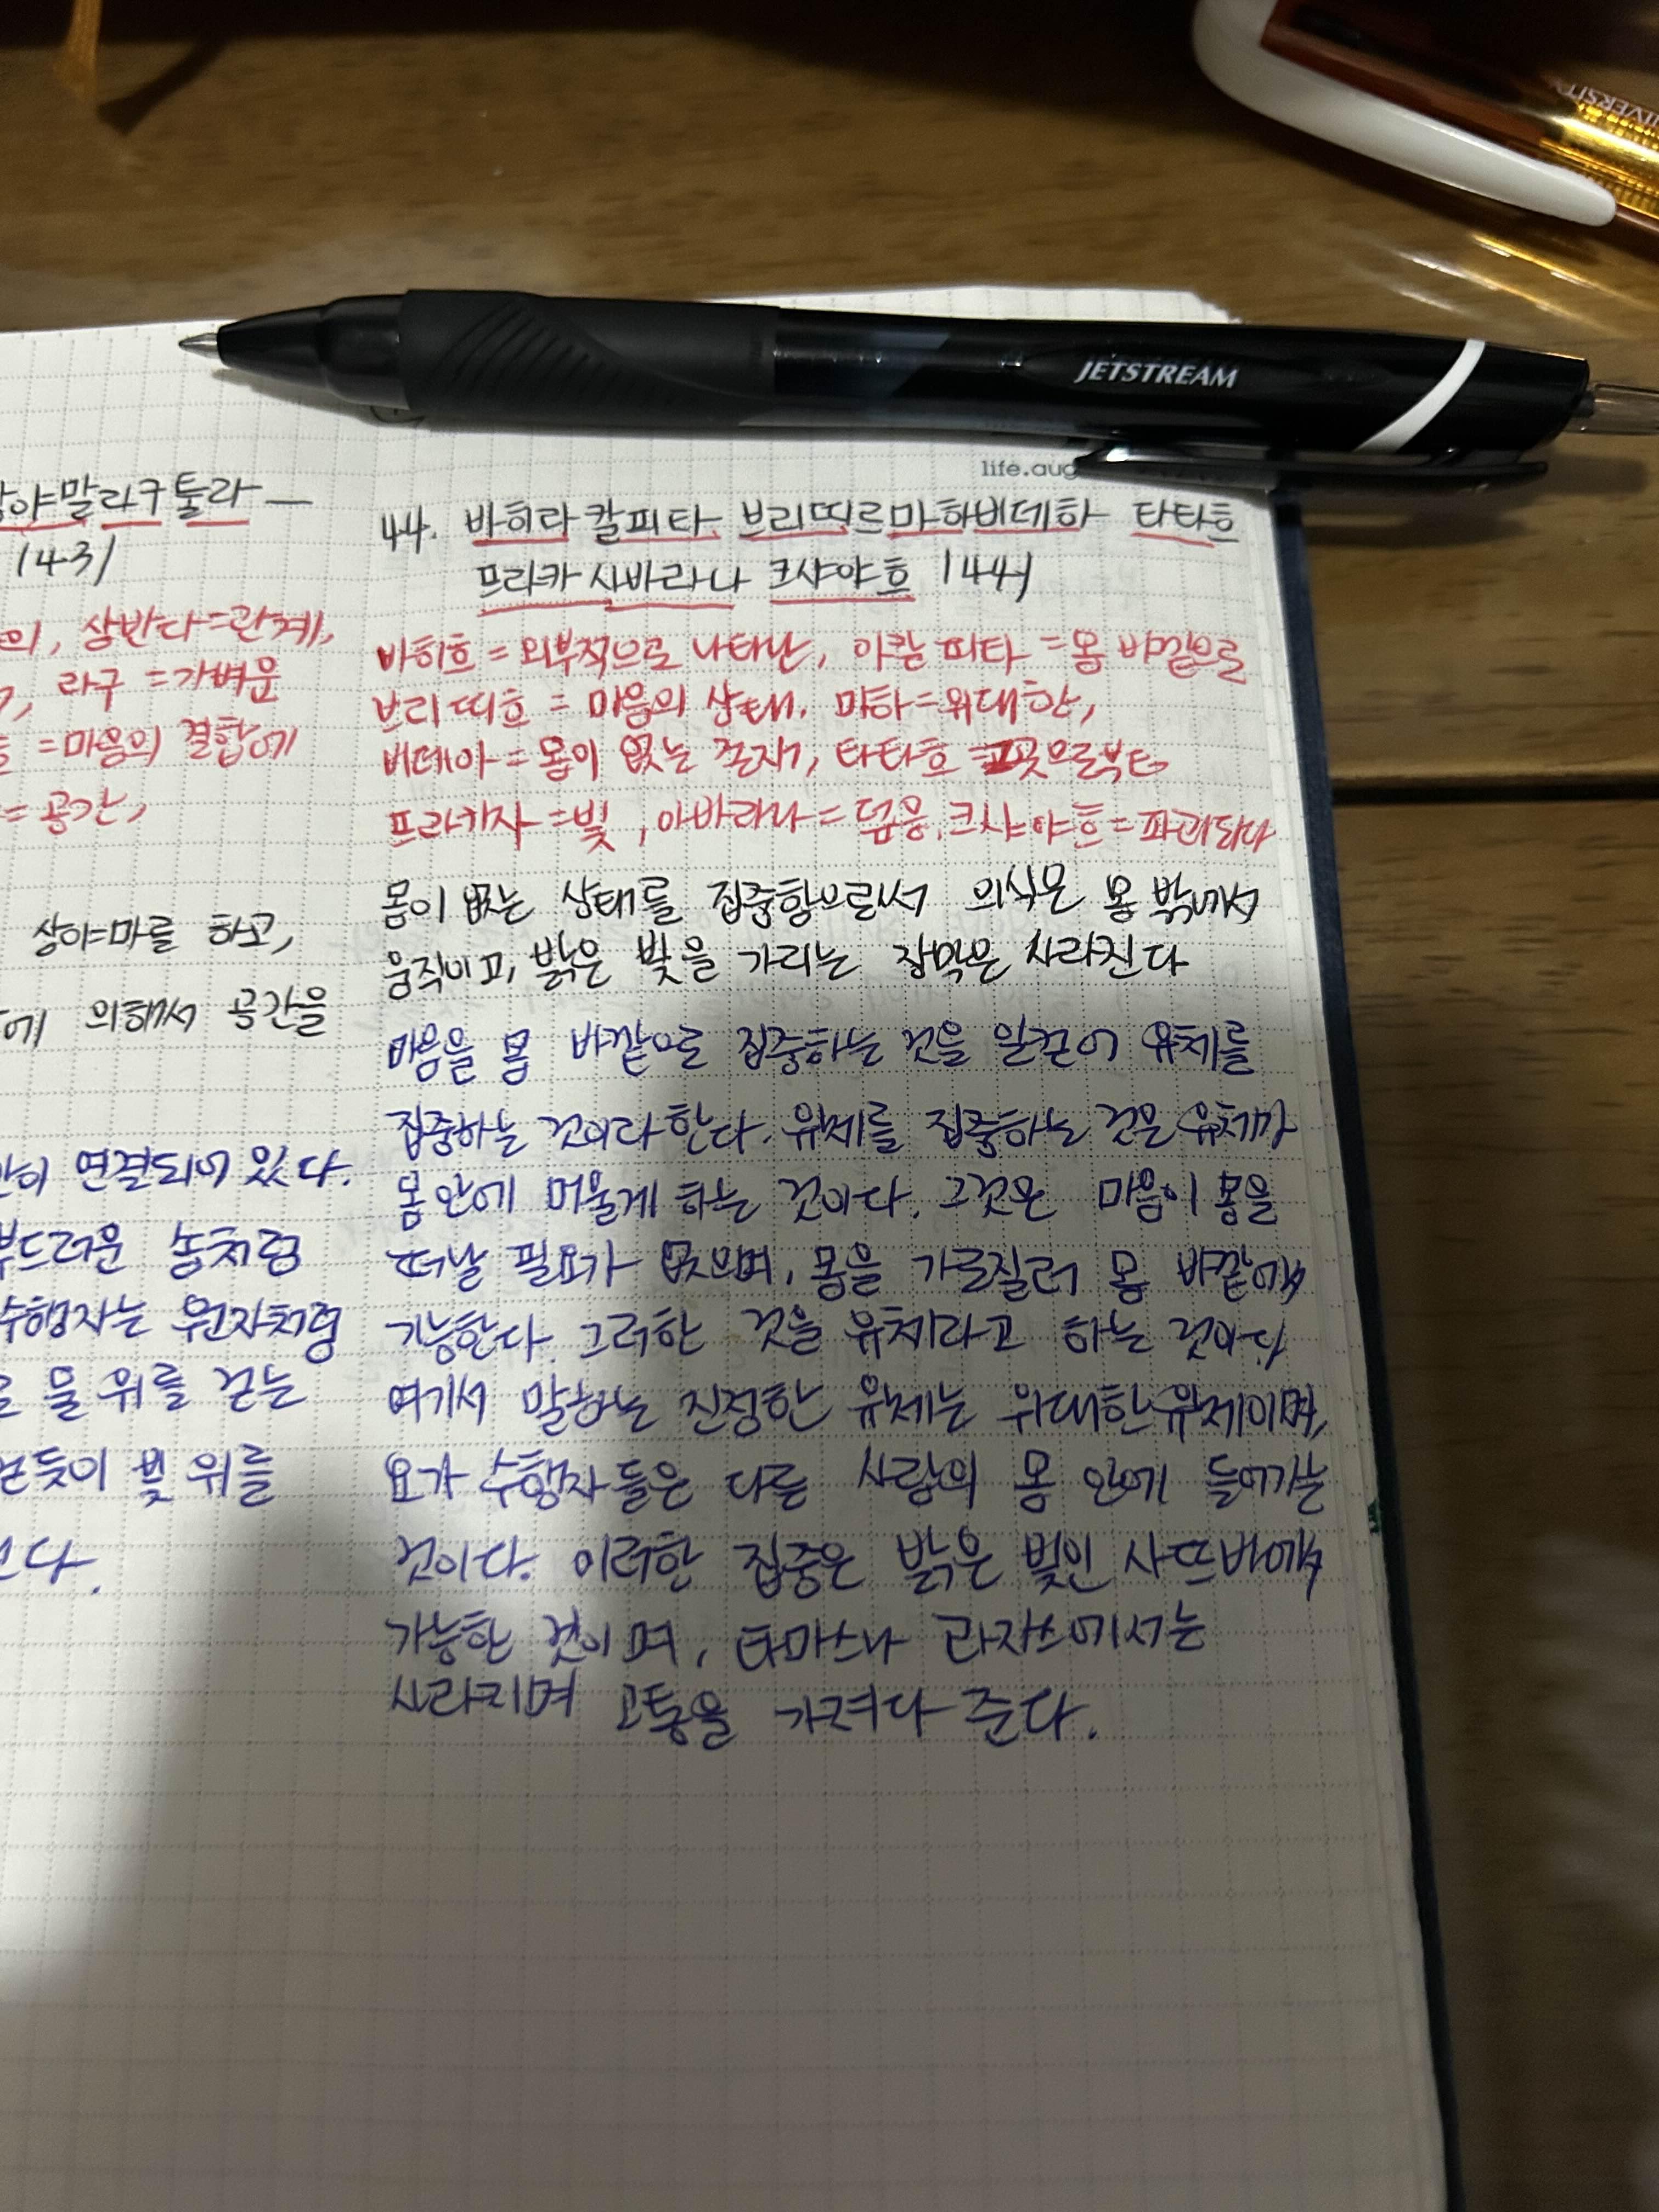 JETSTREAM
life.aug
말라쿠툴라—
1431
의, 상반다=관계,
라구=가벼운
=마음의 결합에
=공간,
상야마를 하고,
에 의해서 공간을
연결되어 있다.
부드러운 솜처럼
수행자는 원자처럼
물 위를 걷는
걷듯이 빛 위를
다.
44. 바히라칼피타 브리띠르마하비데하 타타흐
프라카사바라나 크샤야흐 1441
바히흐=외부적으로 나타난, 아칼피타=몸 바깥으로
브리띠흐=마음의 상태. 마하=위대한,
비데아=몸이 없는 존재, 타타흐=그곳으로부터
프라카사=빛, 아바라나=덮음, 크샤야흐=파괴되다
몸이 없는 상태를 집중함으로서 의식은 몸 밖에서
움직이고, 밝은 빛을 가리는 장막은 사라진다
마음을 몸 바깥으로 집중하는 것을 일컬어 유체를
집중하는 것이라 한다. 유체를 집중하는 것은 유체가
몸 안에 머물게 하는 것이다. 그것은 마음이 몸을
떠날 필요가 없으며, 몸을 가로질러 몸 바깥에서
가능한다. 그러한 것을 유체라고 하는 것이다
여기서 말하는 진정한 유체는 위대한 유체이며,
요가 수행자들은 다른 사람의 몸 안에 들어가는
것이다. 이러한 집중은 밝은 빛인 사뜨바에서
가능한 것이며, 타마스나 라자스에서는
사라지며 고통을 가져다 준다.